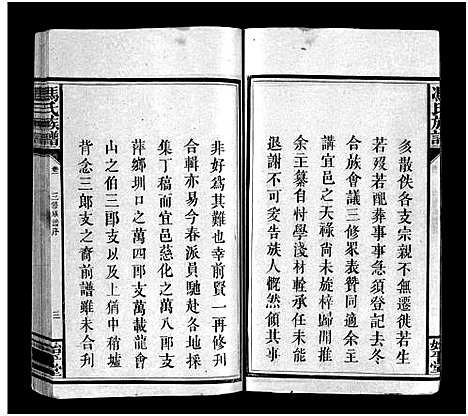 馮氏族譜
亥散佚各支宗親不無遷徙若生
若歿若配葬事事急須登記去冬
合族會議三修衆表贊同合舉
講宜邑之天祿尚未旋梓歸開推
余主纂自忖學淺材輇承任未能
退謝不可爰告族人慨然領其事
非好為其難也幸前賢一再修刋
合輯亦易今春派員馳赴各地採
集丁稿而宜邑慈化之萬八郎支
萍鄉圳口之萬四郎支萬載龍會
山之伯三郎支以及上猶中稍墟
背念三郎支之裔前譜雖未合刋
馮氏族譜
三修族譜序
三